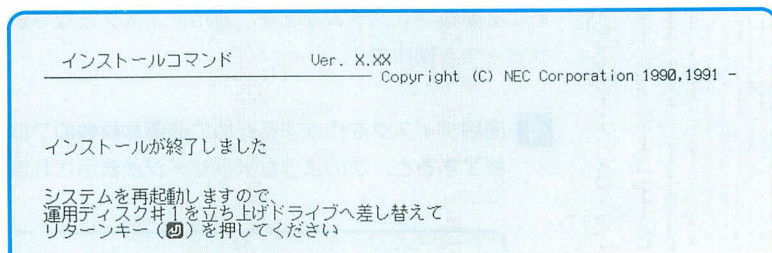 インストールコマンド Ver. X.XX
Copyright (C) NEC Corporation 1990,1991 -
インストールが終了しました
システムを再起動しますので、
運用ディスク#1を立ち上げドライブへ差し替えて
リターンキー(⏎)を押してください